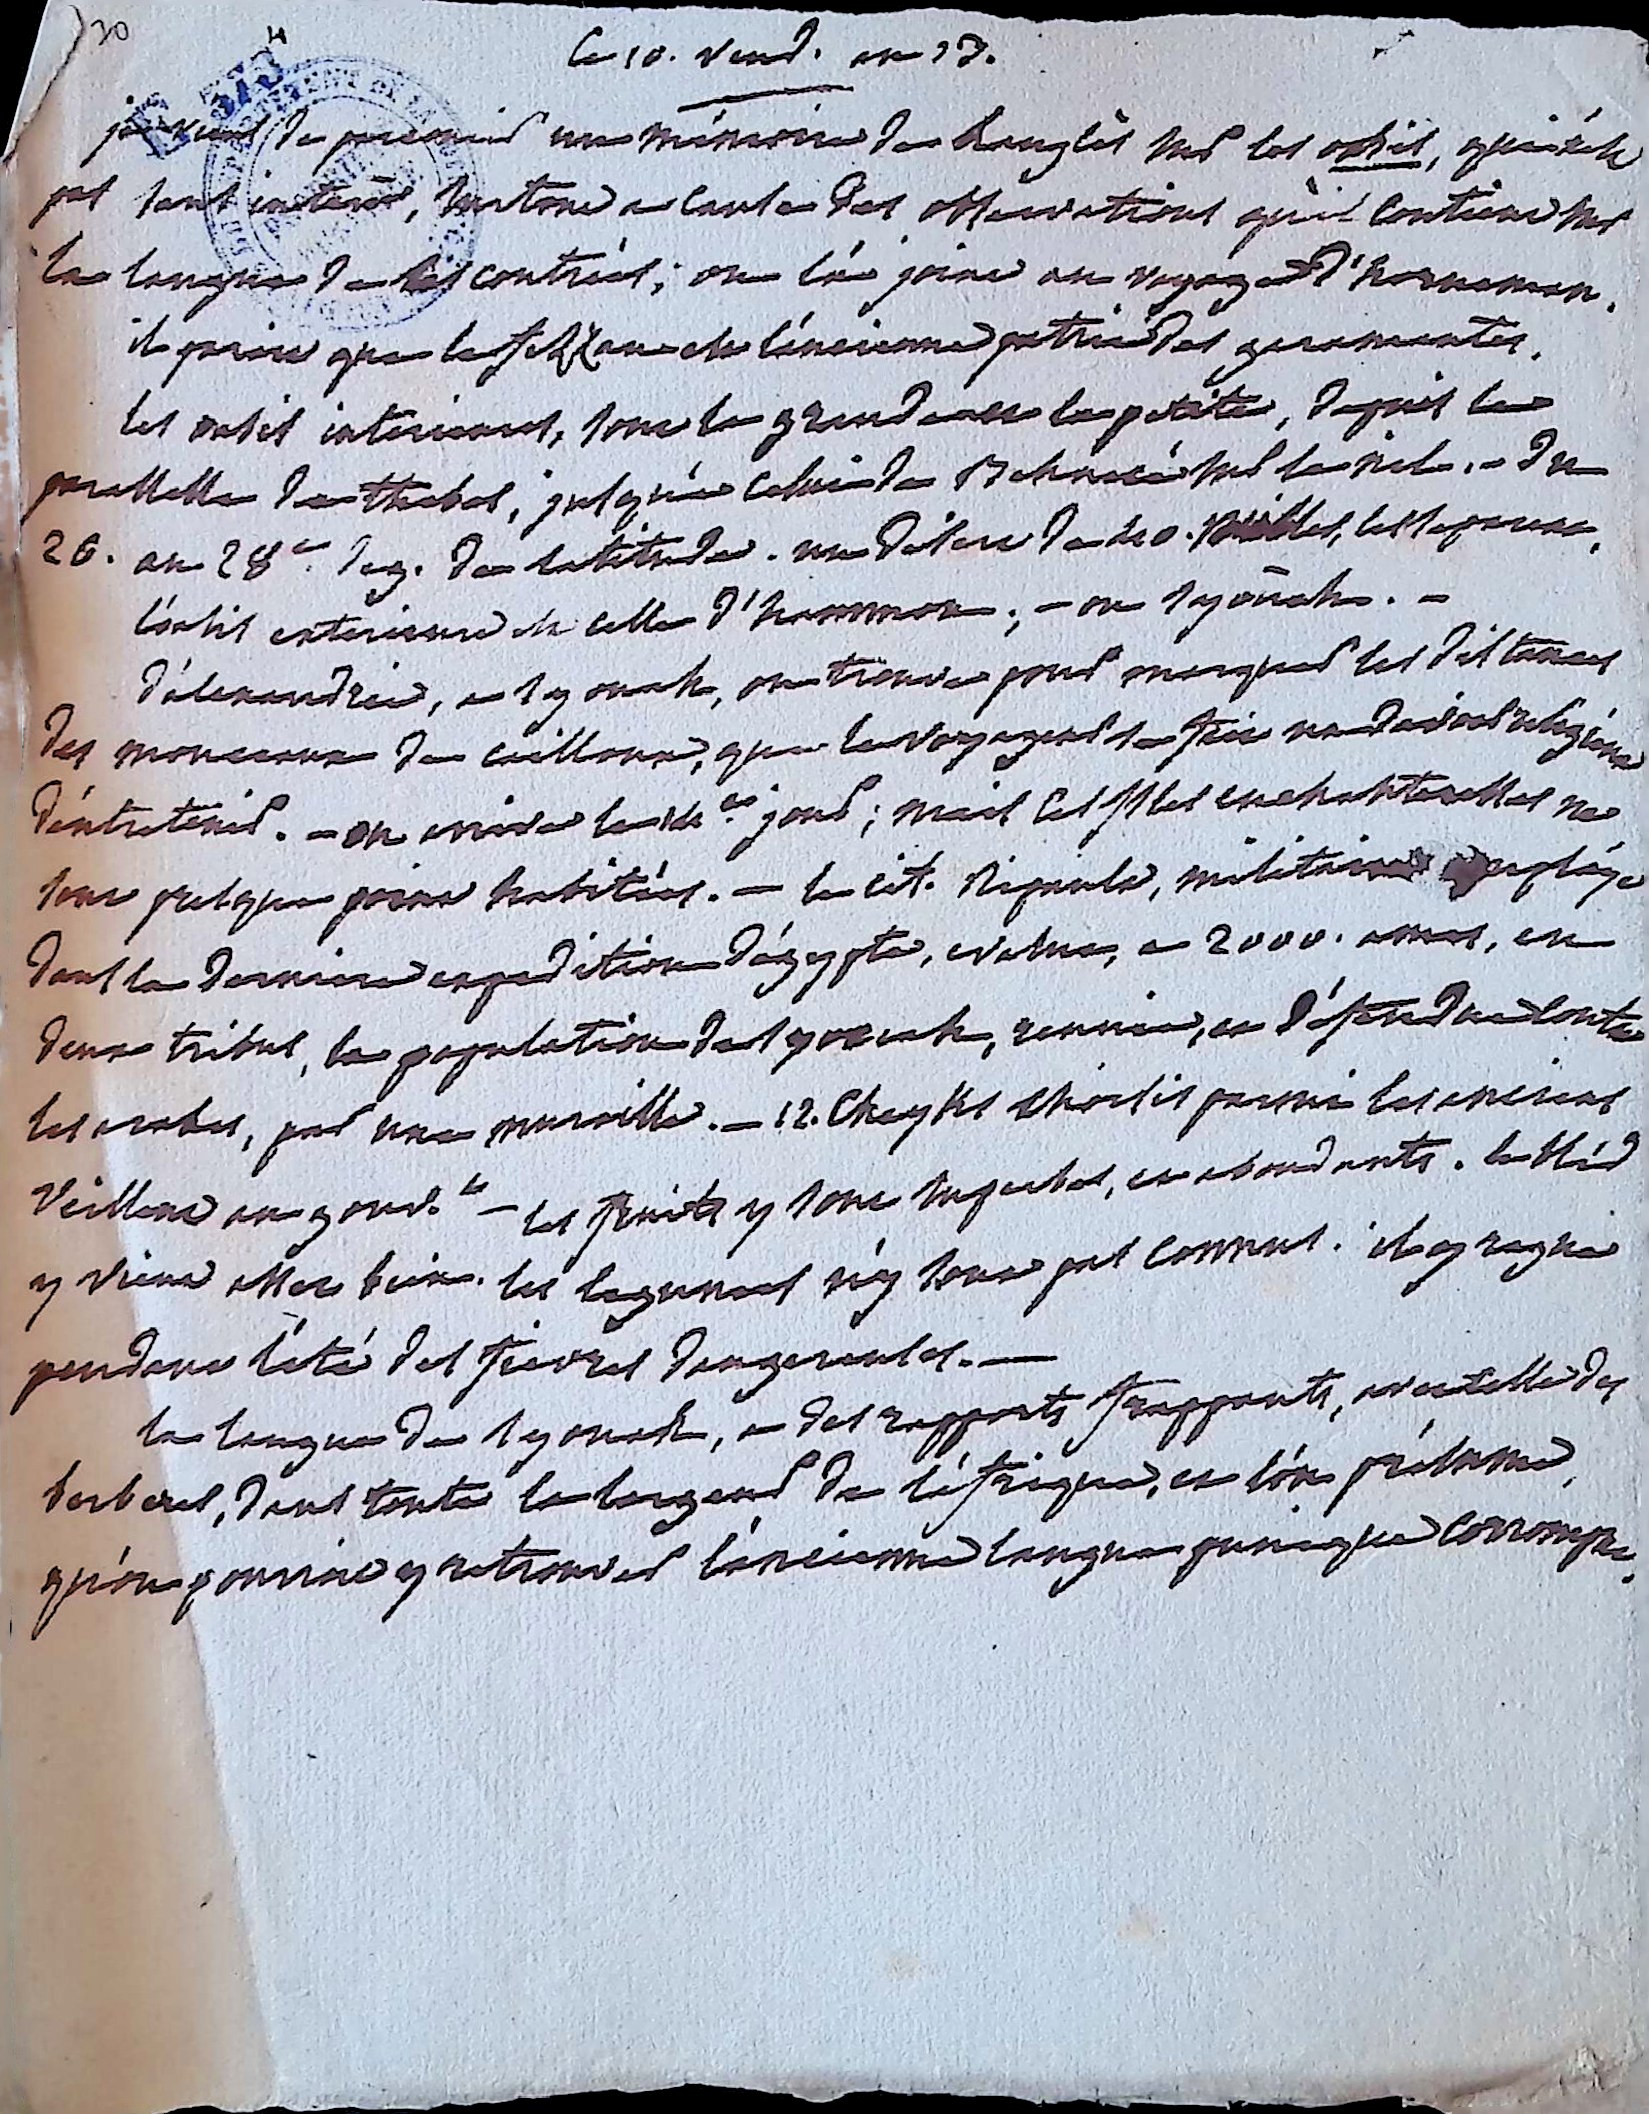 30
le 10. vend. an 13.
je viens de parcourir un mémoire de Langlès sur les oasis, qui n'est
pas sans intérêt, surtout a cause des observations qu'il contient sur
la langue de ces contrées; on l'a joint au voyage d'hornemann.
il paroit que le fezzan est l'ancienne patrie des garamantes.
les oasis interieures, sont la grande et la petite, depuis le
parallelle de thebes, jusqu'à celui de Behnesé sur le nil. - du
26. au 28e. deg. de latitude. un désert de 40. milles, les separe.
l'oasis exterieure est celle d'hammon; - ou syouah. -
d'alexandrie, a syouah, on trouve pour marquer les distances
des monceaux de cailloux, que le voyageur se fait un devoir religieux
d'entretenir. - on arrive le 14e. jour; mais ces isles enchanteresses ne
sont presque point habitées. - le cit. Ripault, militaire employé
dans la derniere expedition d'égypte, evalue, a 2000. ames, en
deux tribus, la population de syouah, reunie, et défendue contre
les arabes, par une muraille. - 12. Cheykhs choisis parmi les anciens
veillent au gouv.t - les fruits y sont superbes, et abondants. le bled
y vient assez bien. les legumes n'y sont pas connus. il y regne
pendant l'été des fievres dangereuses. -
la langue de syouah, a des rapports frappants, avec celle des
berberes, dans toute la largeur de l'afrique, et l'on présume,
qu'on pourroit y retrouver l'ancienne langue punique corrompue.